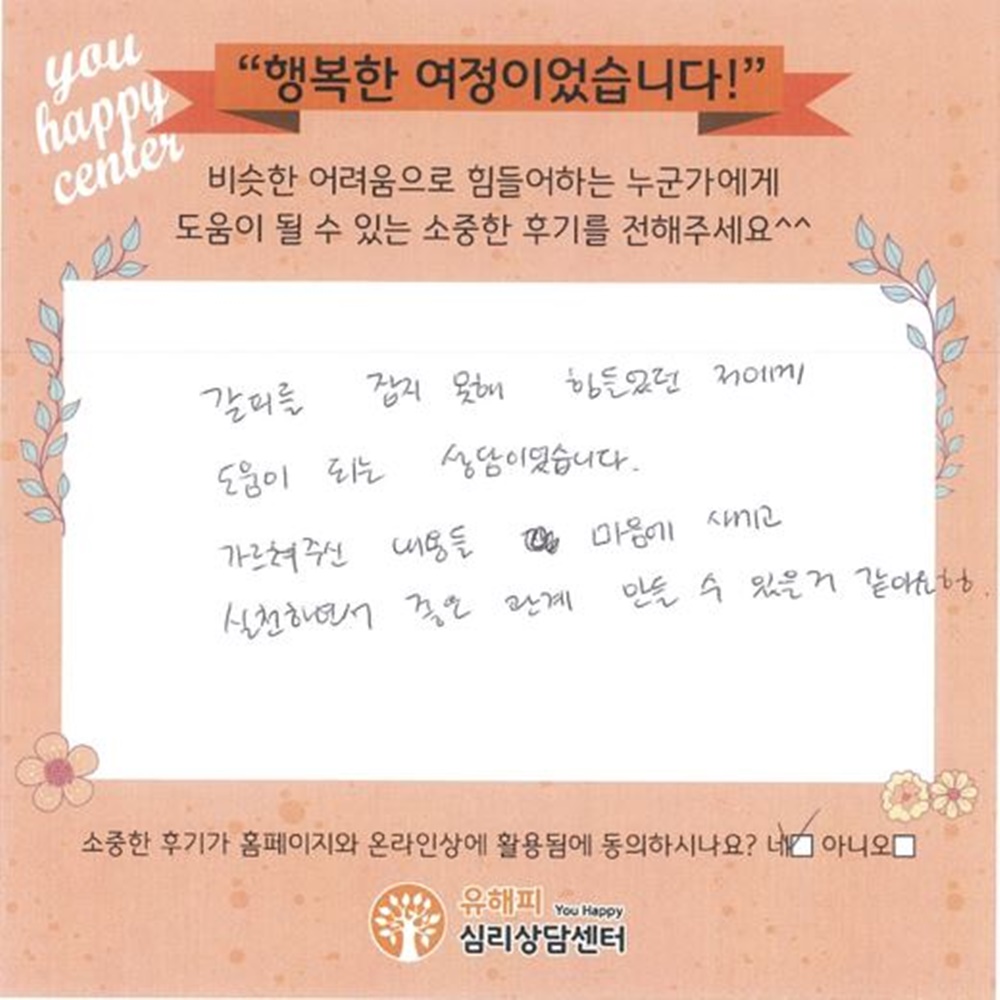 you
happy
center
“행복한 여정이었습니다!”
비슷한 어려움으로 힘들어하는 누군가에게
도움이 될 수 있는 소중한 후기를 전해주세요^^
갈피를 잡지 못해 힘들었던 저에게
도움이 되는 상담이였습니다.
가르쳐주신 내용들 마음에 새기고
실천하면서 좋은 관계 만들 수 있을거 같아요
소중한 후기가 홈페이지와 온라인상에 활용됨에 동의하시나요? 네 아니오
유해피 You Happy
심리상담센터